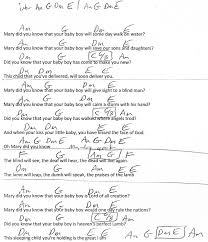 intro Am G Dm E | Am G Dm E
Am G Dm E
Mary did you know that your baby boy will some day walk on water?
Am G Dm E
Mary did you know that your baby boy will save our sons and daughters?
Dm G C G/B Am
Did you know that your baby boy has come to make you new?
Dm Dm E E
This child that you've delivered, will soon deliver you.
Am G Dm E
Mary did you know that your baby boy will give sight to a blind man?
Am G Dm E
Mary did you know that your baby boy will calm a storm with his hand?
Dm G C G/B Am
Did you know that your baby boy has walked where angels trod?
Dm Dm E E
And when you kiss your little baby, you have kissed the face of God.
Am G Dm E Am G Dm E
Oh Mary did you know
F G Am G F
The blind will see, the deaf will hear, the dead will live again.
F G Dm E E
The lame will leap, the dumb will speak, the praises of the lamb
Am G Dm E
Mary did you know that your baby boy is Lord of all creation?
Am G Dm E
Mary did you know that your baby boy would one day rule the nations?
Dm G C G/B Am
Did you know that your baby boy is heaven's perfect Lamb?
Dm Dm E E Am G Dm E Am
This sleeping child you're holding is the great I